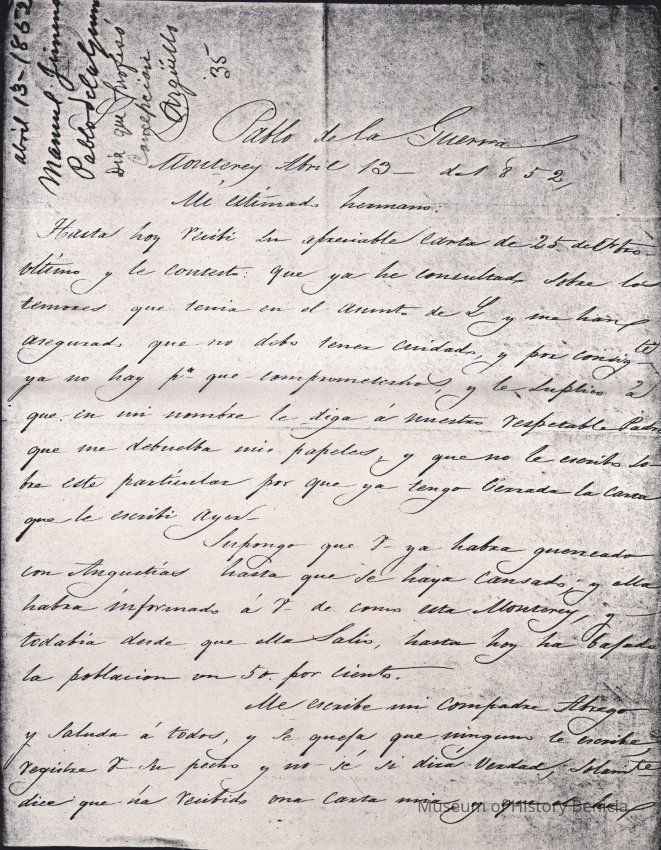 abril 13-1852
Manuel Jimeno
Pablo de la Guerra
Dia que profesó
Concepcion
Argüello
35
Pablo de la Guerra
Monterey Abril 13- de 1852,
Mi estimado hermano.
Hasta hoy recibi su apreciable carta de 25 del
ultimo y le contesto: que ya he consultado sobre los
temores que tenia en el asunto de L y me han
asegurado que no debo tener cuidado, y por consigte
ya no hay pa. que comprometerlos, y le suplico á
que en mi nombre le diga á nuestro respetable Padre
que me debuelba mis papeles, y que no le escribo so
bre este particular por que ya tengo cerrada la carta
que le escribi ayer-
Supongo que V ya habra guerreado
con Angustias hasta que se haya cansado; y ella
habra informado á V de como esta Monterey, y
todabia desde que ella salio, hasta hoy ha bajado
la poblacion un 50. por ciento.
Me escribe mi compadre Abrego
y saluda á todos, y se queja que ninguno le escribe
registre V su pecho y no sé si dirá verdad, solamte
dice que ha recibido una carta mia, y
Museum of History Benicia